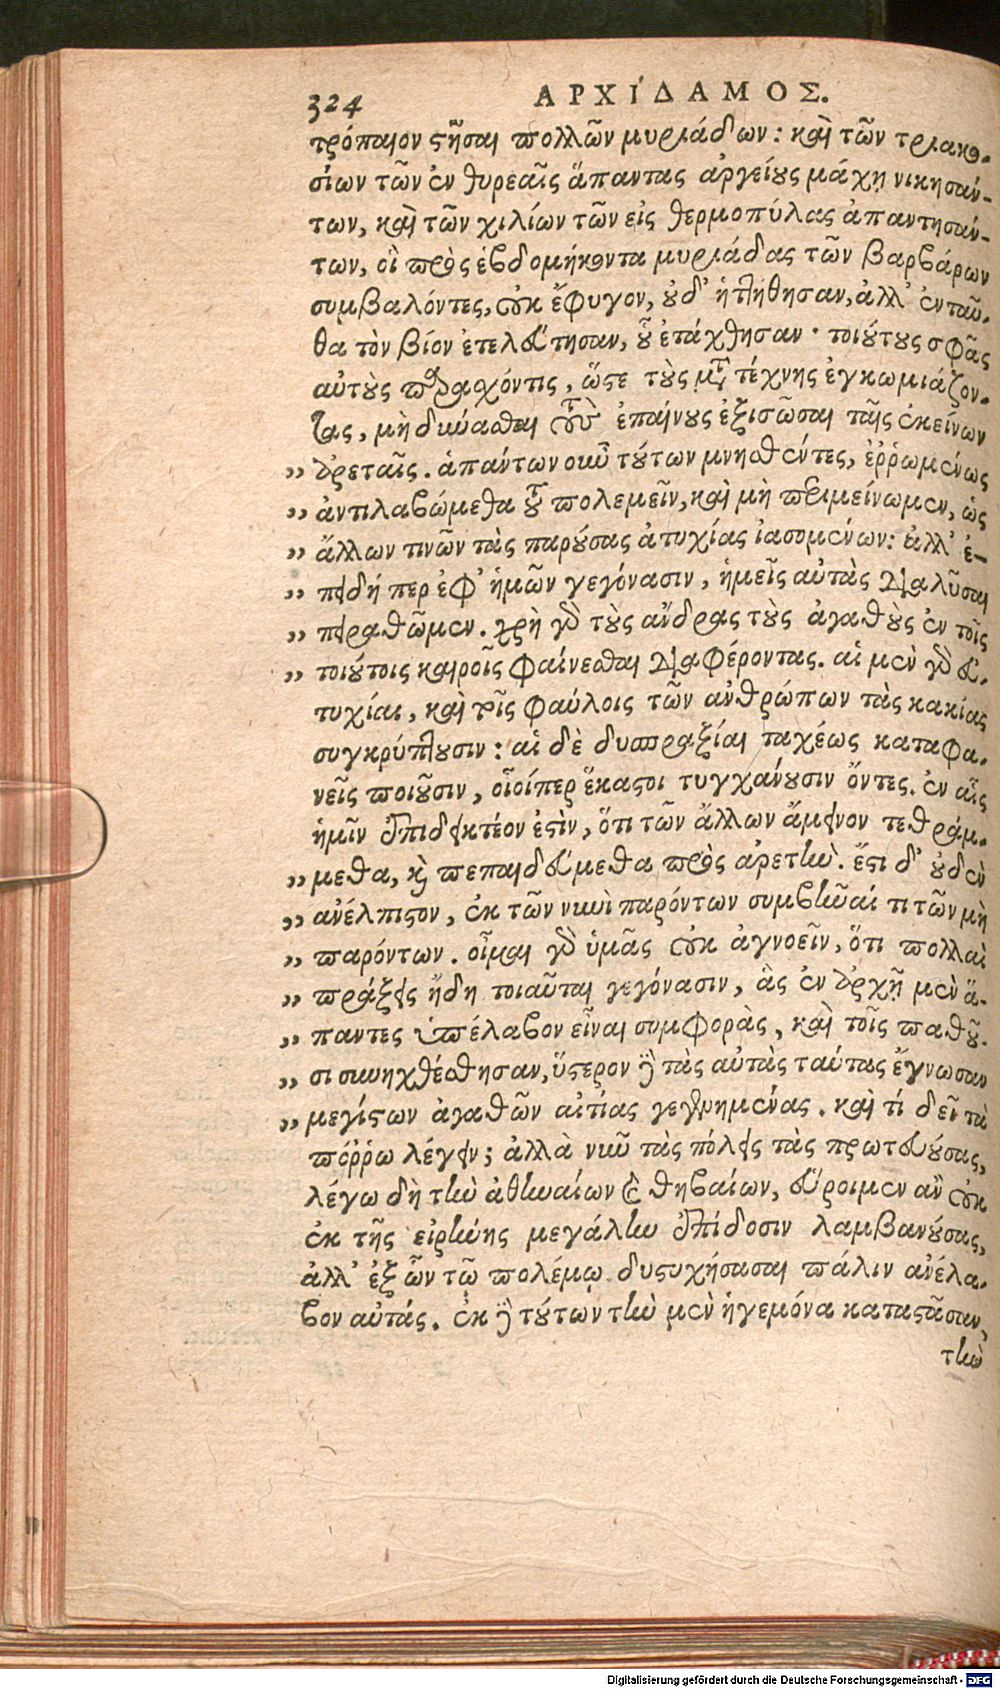 324 ΑΡΧΙΔΑΜΟΣ.
τρόπαιον ϛῆσαι πολλῶν μυριάδων: καὶ τῶν τριακο-
σίων τῶν ἐν θυρεαῖς ἅπαντας ἀργείους μάχῃ νικησάν-
των, καὶ τῶν χιλίων τῶν εἰς θερμοπύλας ἀπαντησάν-
των, οἳ πρὸς ἑβδομήκοντα μυριάδας τῶν βαρβάρων
συμβαλόντες, οὐκ ἔφυγον, οὐδ' ἡττήθησαν, ἀλλ' ἐνταῦ-
θα τὸν βίον ἐτελεύτησαν, οὗ ἐτάχθησαν· τοιούτους σφᾶς
αὐτοὺς παραχόντες, ὥϛε τοὺς μετὰ τέχνης ἐγκωμιάζον-
τας, μὴ δύνασθαι τοὺς ἐπαίνους ἐξισῶσαι ταῖς ἐκείνων
" ἀρεταῖς. ἁπάντων οὖν τούτων μνησθέντες, ἐῤῥωμένως
" ἀντιλαβώμεθα τοῦ πολεμεῖν, καὶ μὴ περιμείνωμεν, ὡς
" ἄλλων τινῶν τὰς παρούσας ἀτυχίας ἰασομένων: ἀλλ' ἐ-
" πειδή περ ἐφ' ἡμῶν γεγόνασιν, ἡμεῖς αὐτὰς διαλῦσαι
" πειραθῶμεν. χρὴ γὰρ τοὺς ἄνδρας τοὺς ἀγαθοὺς ἐν τοῖς
" τοιούτοις καιροῖς φαίνεσθαι διαφέροντας. αἱ μὲν γὰρ εὐ-
τυχίαι, καὶ τοῖς φαύλοις τῶν ἀνθρώπων τὰς κακίας
συγκρύπτουσιν: αἱ δὲ δυσπραξίαι ταχέως καταφα-
νεῖς ποιοῦσιν, οἷοίπερ ἕκαϛοι τυγχάνουσιν ὄντες. ἐν αἷς
ἡμῖν ἐπιδεικτέον ἐϛὶν, ὅτι τῶν ἄλλων ἄμεινον τεθράμ-
" μεθα, καὶ πεπαιδεύμεθα πρὸς ἀρετὴν. ἔϛι δ' οὐδὲν
" ἀνέλπιϛον, ἐκ τῶν νυνὶ παρόντων συμβῆναί τι τῶν μὴ
" παρόντων. οἶμαι γὰρ ὑμᾶς οὐκ ἀγνοεῖν, ὅτι πολλαὶ
" πράξεις ἤδη τοιαῦται γεγόνασιν, ἃς ἐν ἀρχῇ μὲν ἅ-
" παντες ὑπέλαβον εἶναι συμφορὰς, καὶ τοῖς παθοῦ-
" σι συνηχθέσθησαν, ὕϛερον δὲ τὰς αὐτὰς ταύτας ἔγνωσαν
" μεγίϛων ἀγαθῶν αἰτίας γεγενημένας. καὶ τί δεῖ τὰ
πόῤῥω λέγειν; ἀλλὰ νῦν τὰς πόλεις τὰς πρωτευούσας,
λέγω δὴ τὴν ἀθηναίων καὶ θηβαίων, εὕροιμεν ἂν οὐκ
ἐκ τῆς εἰρήνης μεγάλην ἐπίδοσιν λαμβανούσας,
ἀλλ' ἐξ ὧν τῷ πολέμῳ δυϛυχήσασαι πάλιν ἀνέλα-
βον αὑτάς. ἐκ δὲ τούτων τὴν μὲν ἡγεμόνα καταϛᾶσαν,
τὴν
Digitalisierung gefördert durch die Deutsche Forschungsgemeinschaft - DFG